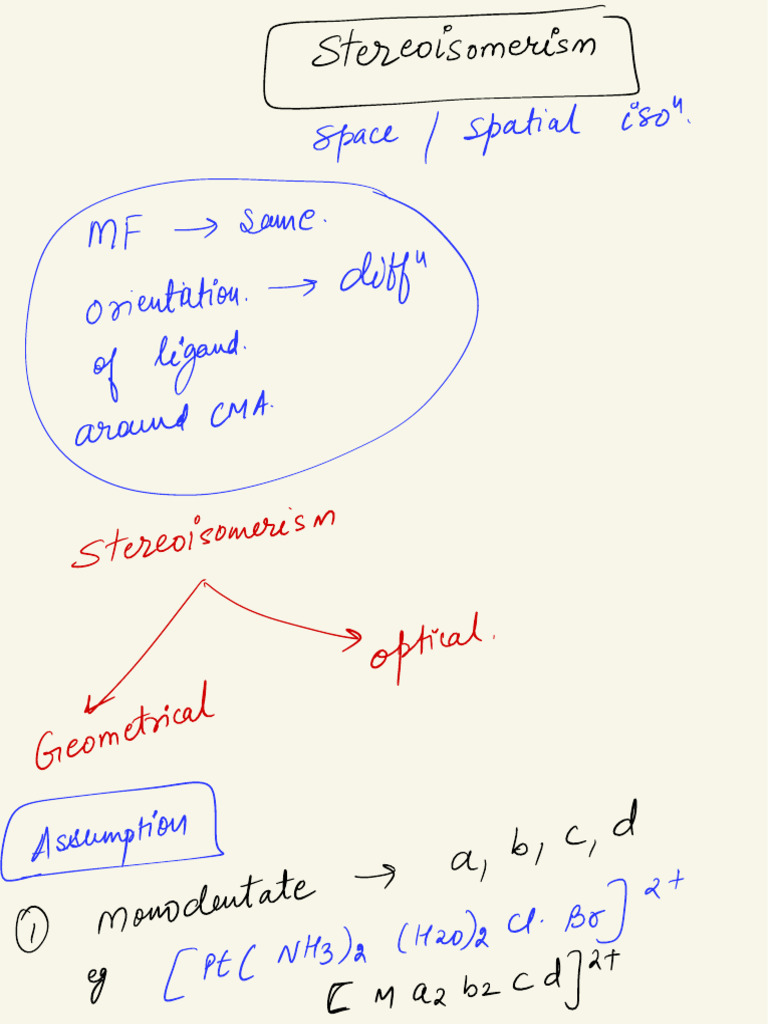 Stereoisomerism
space / spatial isoⁿ.
MF → same.
orientation. → diffⁿ
of ligand.
around CMA.
Stereoisomerism
optical.
Geometrical
Assumption
① Monodentate → a, b, c, d
eg [Pt(NH3)2 (H2O)2 Cl. Br]²⁺
[M a2 b2 c d]²⁺